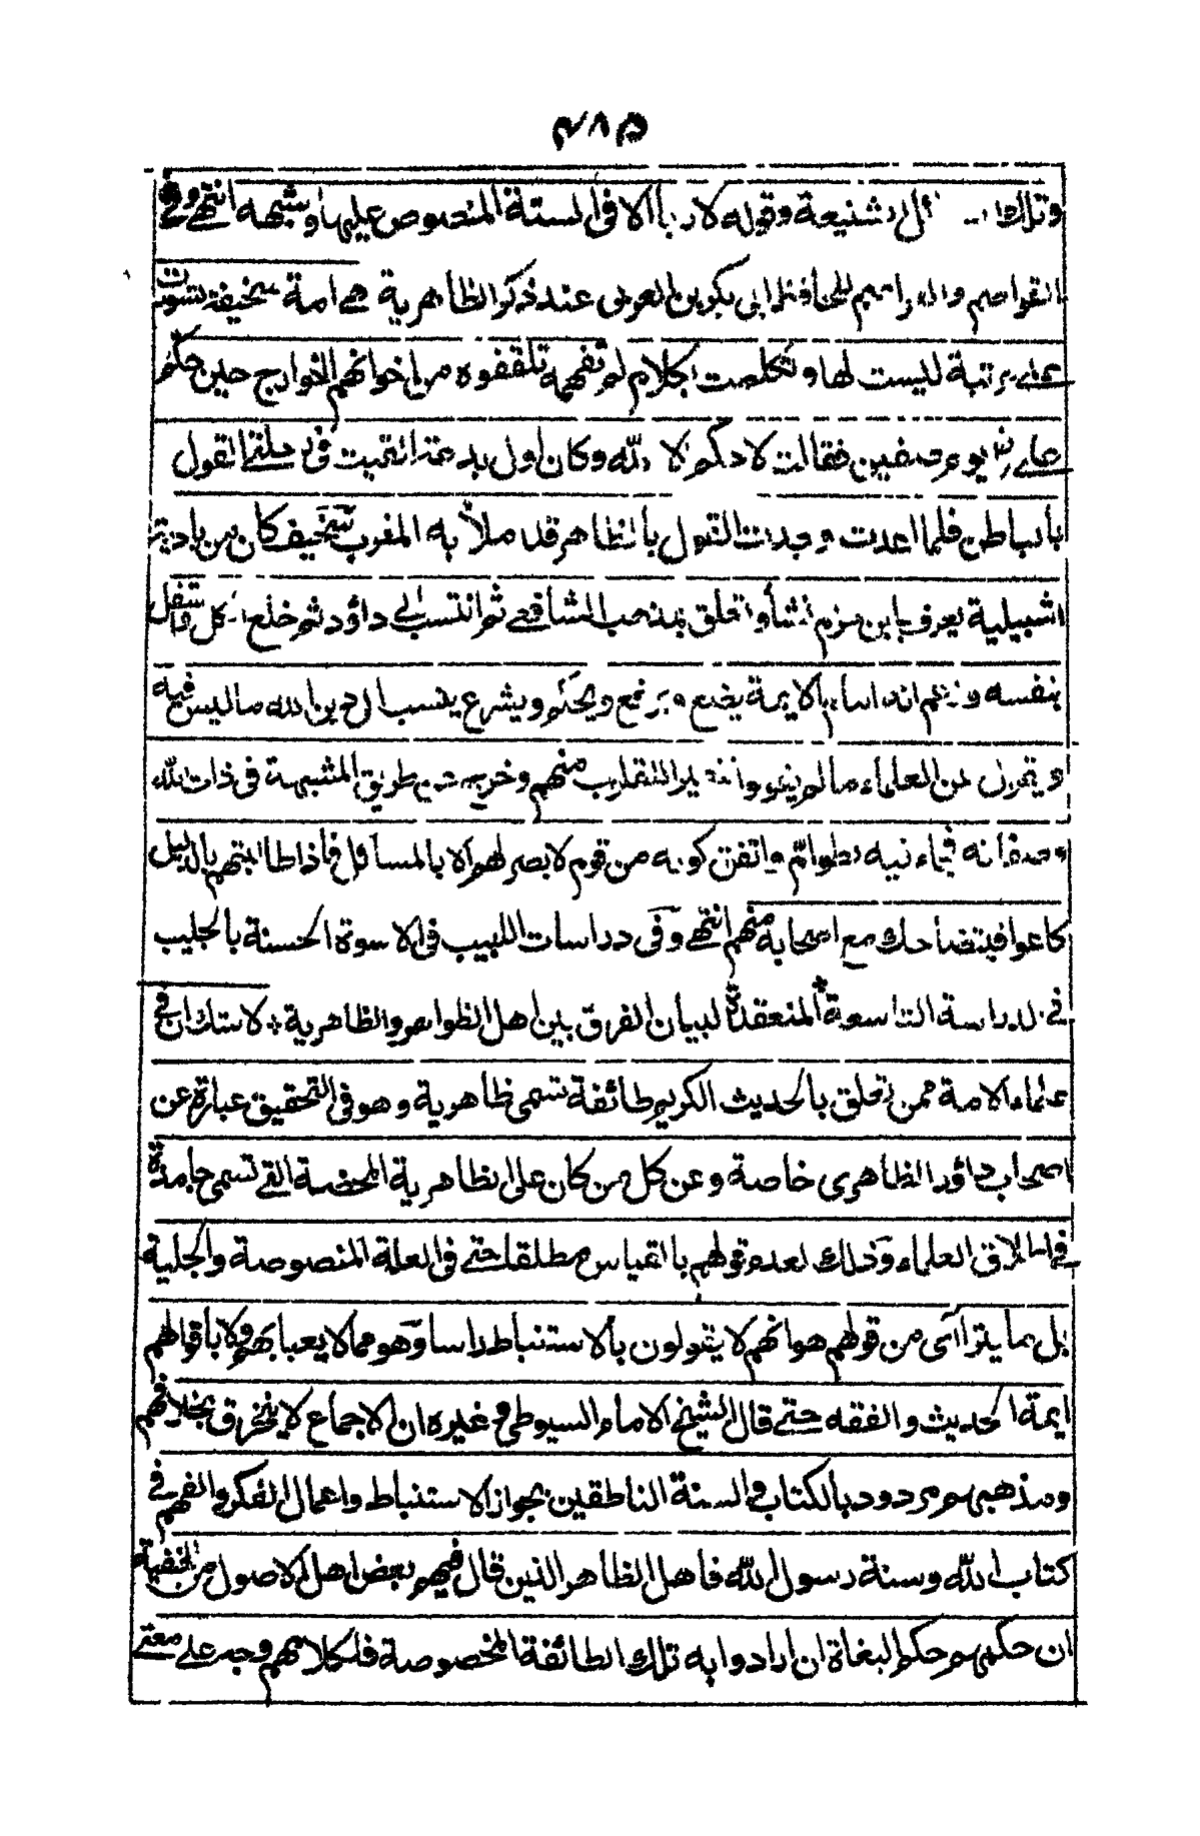 ٤٨٥
وتلك شنيعة وقوله لا ربا الا في الستة المنصوص عليها وشبهه انتهے وفے
القواصم والعواصم للحافظ ابی بكر بن العربی عند ذكر الظاهرية هے امة سخيفة تسورت
علے مرتبة ليست لها وتكلمت بكلام لم تفهمه تلقفوه من اخوانهم الخوارج حين حكم
علے رض يوم صفين فقالت لا حكم الا لله وكان اول بدعة لقيت فی رحلتے القول
بالباطن فلما عدت وجدت القول بالظاهر قد ملأ به المغرب سخيف كان من بادية
اشبيلية يعرف بابن حزم نشأ وتعلق بمذهب الشافعے ثم انتسب الے داؤد ثم خلع الكل واستقل
بنفسه وزعم انه امام الايمة يضع ويرفع ويحكم ويشرع ينسب الی دين الله ما ليس فيه
ويقول عن العلماء ما لم يقولوا تنفيرا للقلوب منهم وخرج عن طريق المشبهة فی ذات الله
وصفاته فجاء فيه بطوام واتفق كونه من قوم لا بصر لهم الا بالمسائل فاذا طالبهم بالدليل
كاعوا فيتضاحك مع اصحابه منهم انتهے وفی دراسات اللبيب فی الاسوة الحسنة بالحبيب
فے الدراسة التاسعة المنعقدة لبيان الفرق بين اهل الظواهر والظاهرية + لا شك ان فے
علماء الامة ممن تعلق بالحديث الكريم طائفة تسمی ظاهرية وهو فی التحقيق عبارة عن
اصحاب داؤد الظاهری خاصة وعن كل من كان علی الظاهرية المحضة التے تسمی جامدة
فے اطلاق العلماء وذلك لعدم قولهم بالقياس مطلقا حتے فی العلة المنصوصة والجلية
بل مما يتراآی من قولهم هو انهم لا يقولون بالاستنباط راسا وهو مما لا يعبا بهم ولا باقوالهم
ايمة الحديث والفقه حتے قال الشيخ الامام السيوطی وغيره ان الاجماع لا ينخرق بخلافهم
ومذهبهم مردود بالكتاب والسنة الناطقين بجواز الاستنباط واعمال الفكر والفهم فے
كتاب الله وسنة رسول الله فاهل الظاهر الذين قال فيهم بعض اهل الاصول من الحنفية
ان حكمهم حكم البغاة ان ارادوا به تلك الطائفة المخصوصة فلكلامهم وجه علے معنے